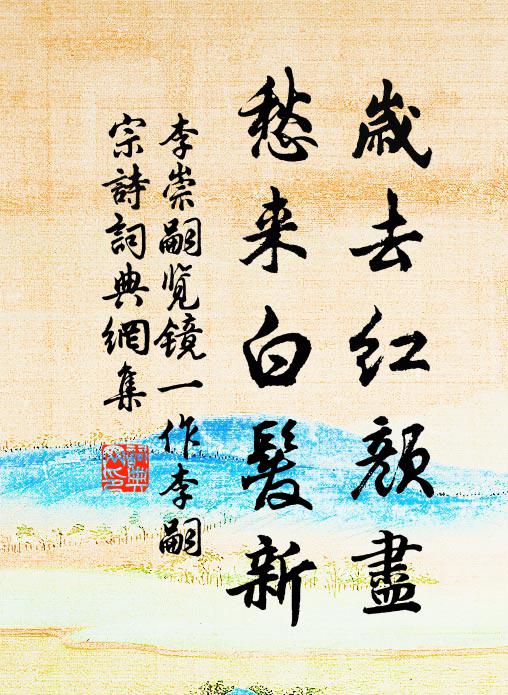 歲去红顔盡
愁来白髮新
李崇嗣览镜一作李嗣
宗詩詞典網集